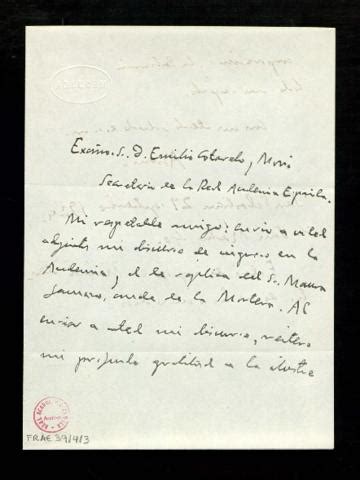 Excmo. Sr. D. Emilio Cotarelo y Mori
Secretario de la Real Academia Española.
Mi respetable amigo: envio a usted
adjunto mi discurso de ingreso en la
Academia y el de replica del Sr. Maura
Gamazo, conde de la Mortera. Al
enviar a usted mi discurso, reitero
mi profunda gratitud a la ilustre
FRAE 39/4/3